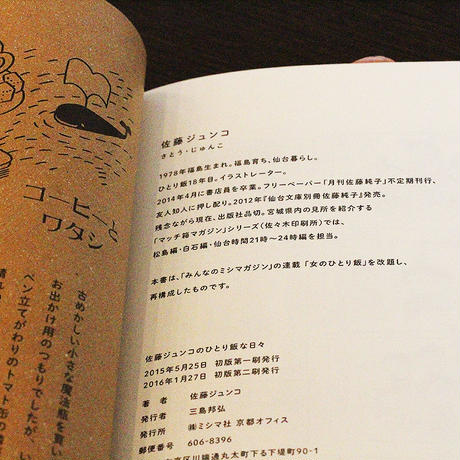 佐藤ジュンコ
さとう・じゅんこ
1978年福島生まれ。福島育ち、仙台暮らし。
ひとり飯18年目。イラストレーター。
2014年4月に書店員を卒業。フリーペーパー「月刊佐藤純子」不定期刊行、
友人知人に押し配り。2012年『仙台文庫別冊佐藤純子』発売。
残念ながら現在、出版社品切。宮城県内の見所を紹介する
「マッチ箱マガジン」シリーズ(佐々木印刷所)では、
松島編・白石編・仙台時間21時〜24時編を担当。
本書は、「みんなのミシマガジン」の連載「女のひとり飯」を改題し、
再構成したものです。
佐藤ジュンコのひとり飯な日々
2015年5月25日 初版第一刷発行
2016年1月27日 初版第二刷発行
著者 佐藤ジュンコ
発行者 三島邦弘
発行所 ㈱ミシマ社 京都オフィス
郵便番号 606-8396
京区川端通丸太町下る下堤町90-1
コーヒーと
ワタシ
古めかしい小さな魔法瓶を買い
お出かけ用のつもりでしたが、い
ペン立てがわりのトマト缶の隣